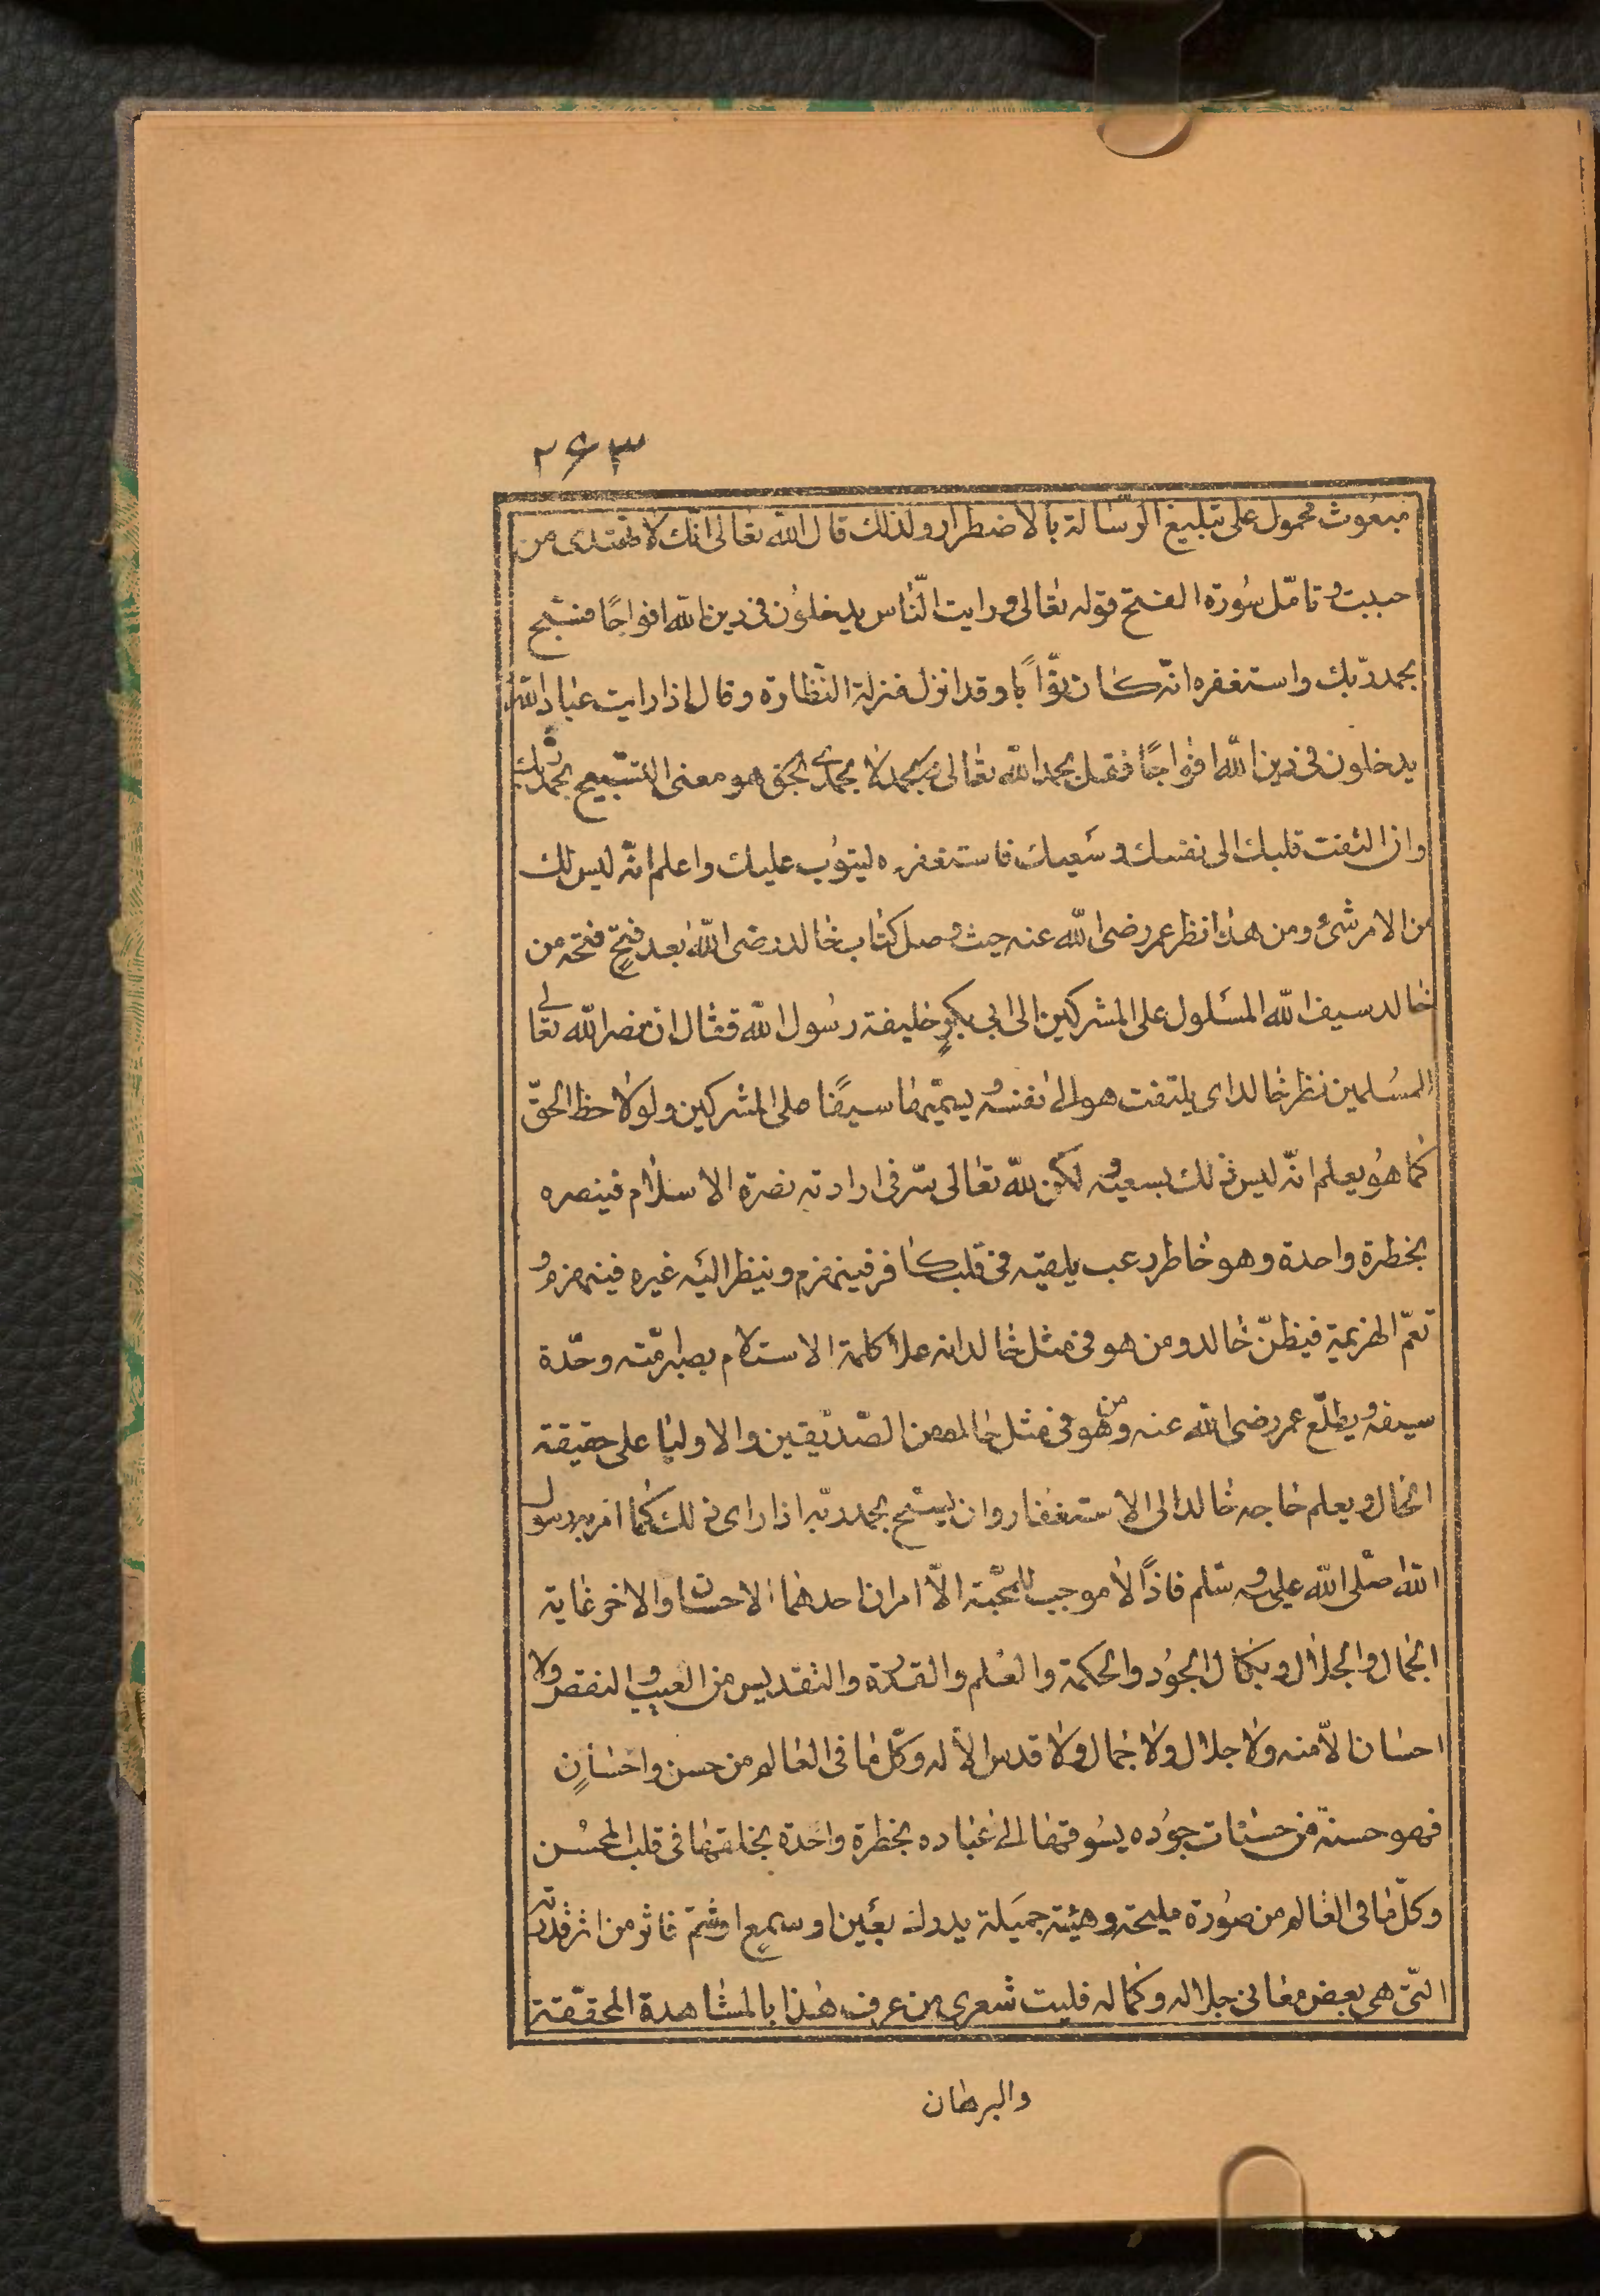 ٢٦٣
مبعوث محمول على تبليغ الرّسالة بالاضطرار ولذلك قال الله تعالى انّك لا تهتدى من
احببت وتامّل سُورة الفتح قوله تعالى ورايت النّاس يدخلُون فى دين الله افواجًا فسبّح
بحمد ربّك واستغفره انّه كان توّابًا وقد انزل منزلة النّظارة وقال اذا رايت عباد الله
يدخلون فى دين الله افواجًا فقل بحمد الله تعالى لا بحمدى بحق هو معنى التسبيح بحمد ربك
وان التفت قلبك الى نفسك وسَعيك فاستغفره ليتوُب عليك واعلم انّه ليس لك
من الامر شئ ومن هذا نظر عمر رضى الله عنه حيث وصل كتاب خالد رضى الله بعد فتحٍ فتحه من
خالد سيف الله المسَلول على المشركين الى ابى بكرٍ خليفة رسُول الله فقال ان نصر الله تعالى
المسُلمين نظر خالد اى يلتفت هو الى نفسه ويسمّيها سيفًا على المشركين ولو لاحظ الحقّ
كما هُو يعلم انّه ليس ذلك بسعيه ولكن لله تعالى سّر فى ارادته نصرة الاسلام فينصره
بخطرة واحدة وهو خاطر رعب يلقيه فى قلب كافر فينهزم وينظر اليَه غيره فينهزم و
تعمّ الهزيمة فيظنّ خالد ومن هو فى مثل خالد انه علا كلمة الاسلام بصرامّته وحدّة
سيفه ويطلّع عمر رضى الله عنه ومن هو فى مثل حاله من الصّدّيقين والاوليا على حقيقة
الحال ويعلم حاجه خالد الى الاستغفار وان يسبّح بحمد ربّه اذا راى ذلك كما امر به رسول
الله صلّى الله عليه وسّلم فاذًا لا موجب للمحّبة الّا امران احدهما الاحسان والاخر غاية
الجمال والجلال وبكمال الجُود والحكمة والعُلم والقدُرة والتقديس من العيب والنقص ولا
احسان الّا منه ولا جلال ولا جمال ولا قدس الّا له وكلّ ما فى العالم من حسن واحسانٍ
فهو حسنة من حسنات جوُده يسُوقها الى عباده بخطرة واحدة يخلقها فى قلب المحسُن
وكلّ ما فى العالم من صُورة مليحة وهيئة جميَلة يدرك بعَين او سمعٍ او شمّ فاثر من اثر قدرته
التّى هى بعض معانى جلاله وكماله فليت شعرى من عرف هذا بالمشاهدة المحققّة
والبرهان